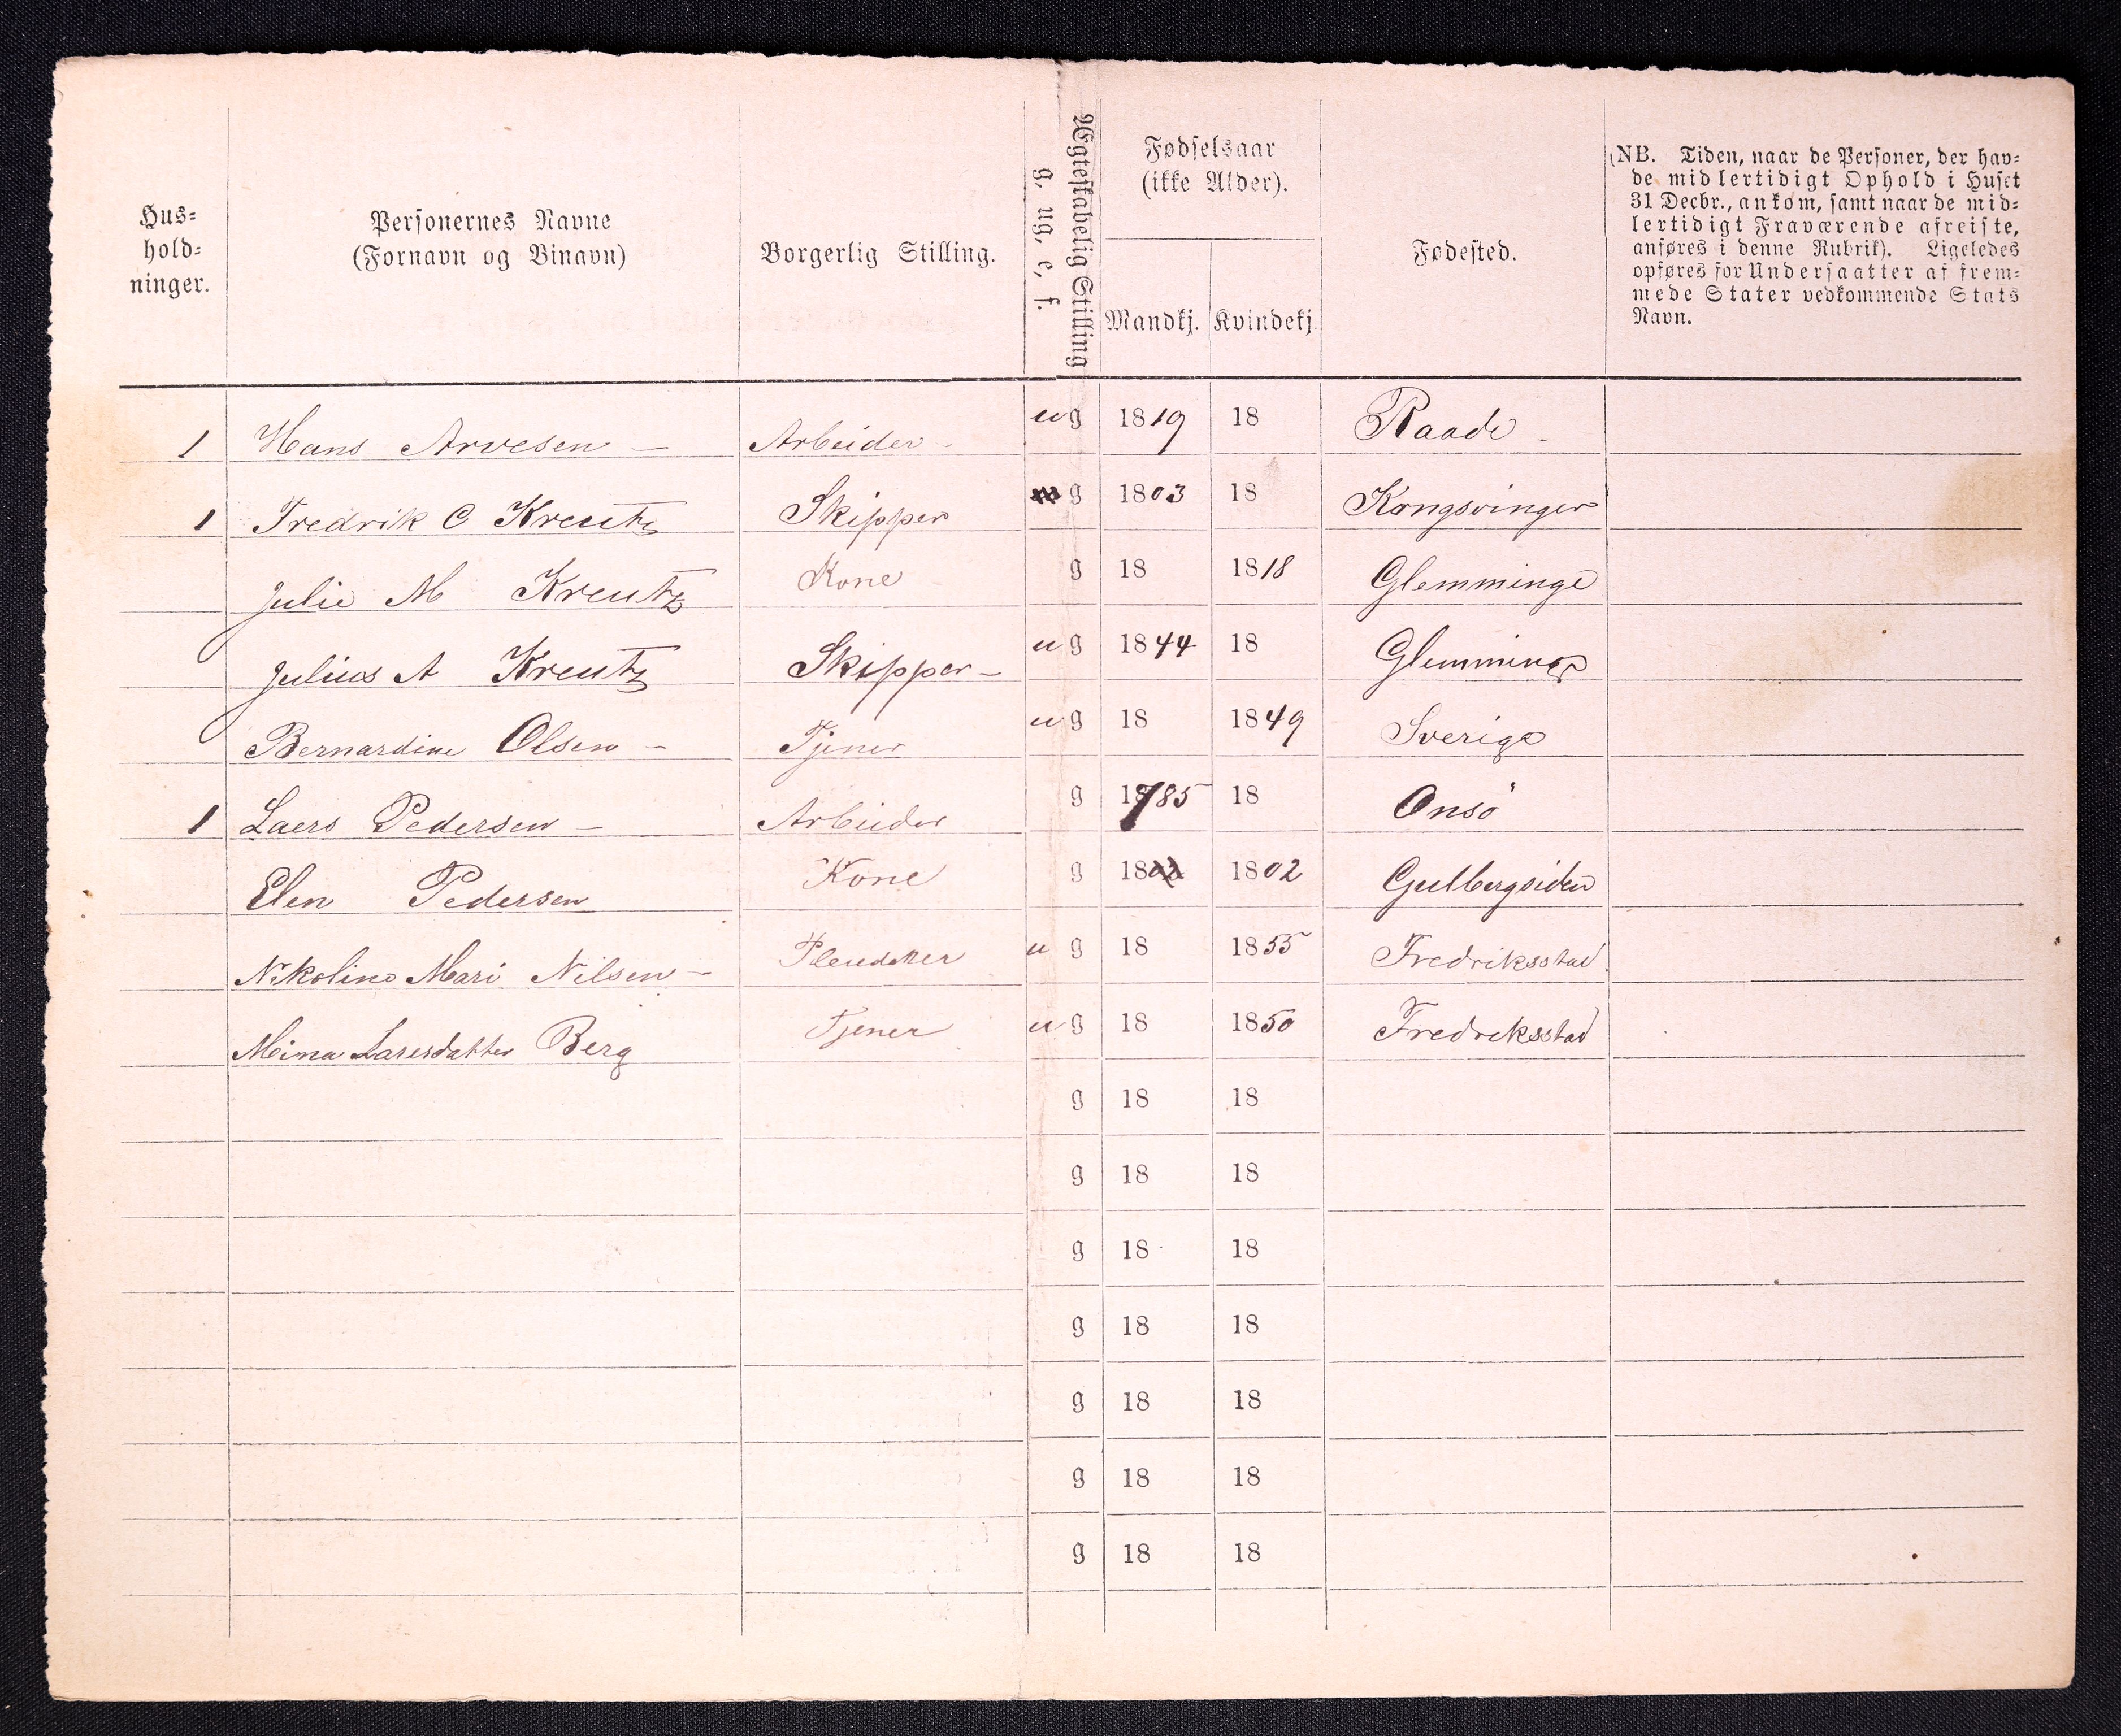 Hus-
hold-
ninger.
Personernes Navne
(Fornavn og Binavn)
Borgerlig Stilling.
Ægteskabelig Stilling
g. ug. e, f.
Fødselsaar
(ikke Alder).
Mandkj. Kvindekj.
Fødested.
(NB. Tiden, naar de Personer, der hav-
de midlertidigt Ophold i Huset
31 Decbr., ankom, samt naar de mid-
lertidigt Fraværende afreiste,
anføres i denne Rubrik). Ligeledes
opføres for Undersaatter af frem-
mede Stater vedkommende Stats
Navn.
1 Hans Arvesen — Arbeider - ug 1819 18 Raade -
1 Fredrik C Kreutz Skipper g 1803 18 Kongsvinger
Julie M Kreutz Kone g 18 1818 Glemminge
Julius A Kreutz Skipper - ug 1844 18 Glemminge
Bernardine Olsen - Tjener ug 18 1849 Sverige
1 Laers Pedersen - Arbeider g 1785 18 Onsö
Elen Pedersen Kone g 18 1802 Gulbergsiden
Nikoline Mari Nilsen - u g 18 1855 Fredriksstad
Mina Larsesdatter Berg Tjener ug 18 1850 Fredriksstad
g 18 18
g 18 18
g 18 18
g 18 18
g 18 18
g 18 18
g 18 18